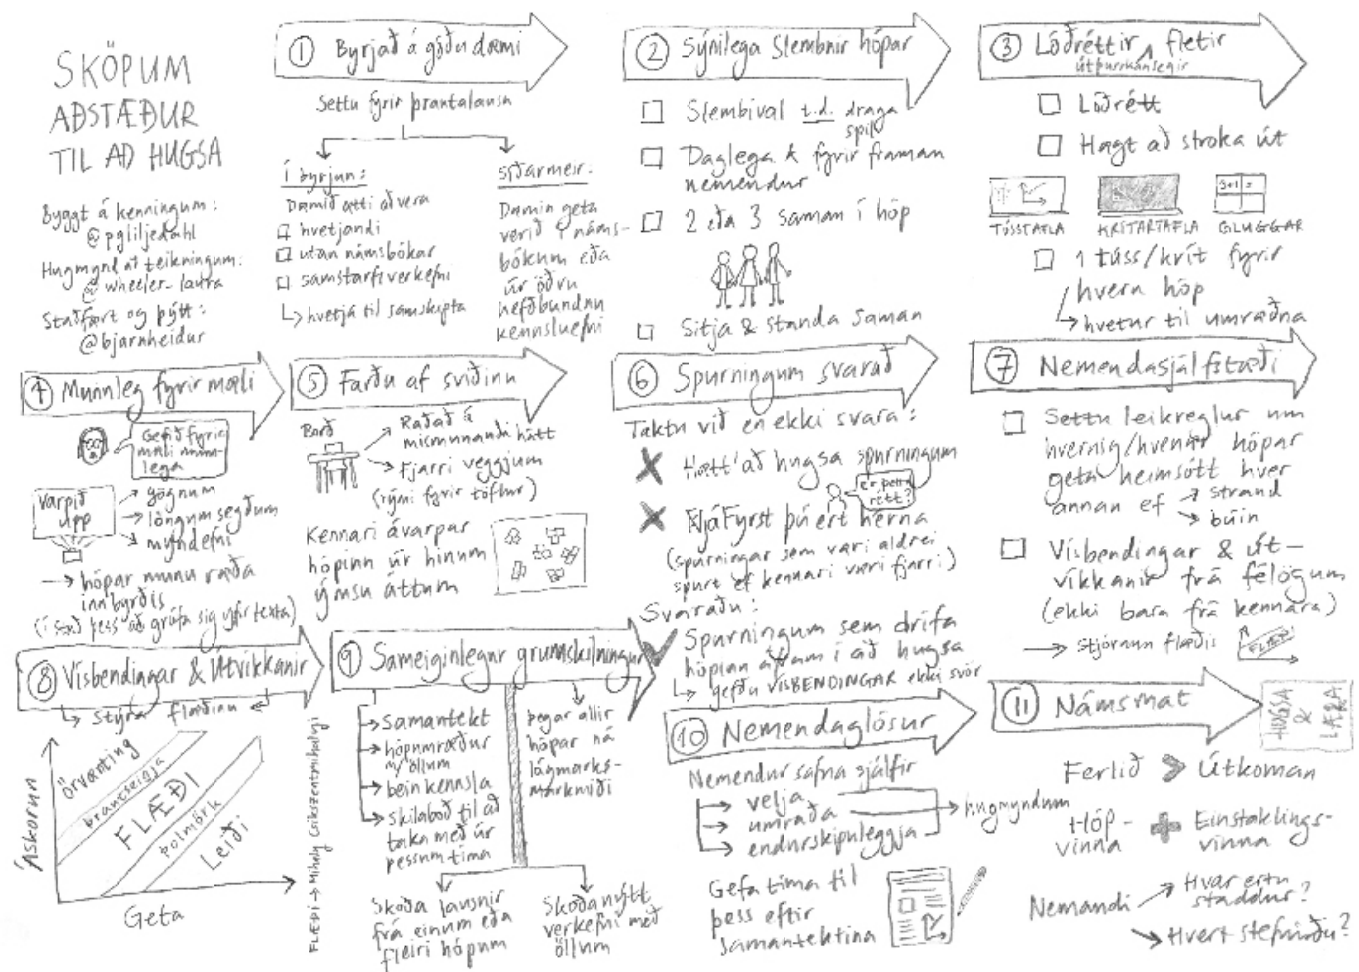 SKÖPUM
AÐSTÆÐUR
TIL AÐ HUGSA
Byggt á kenningum:
@pgliljedahl
Hugmynd að teikningum:
@wheeler_laura
Staðfært og þýtt:
@bjarnheidur
1 Byrjað á góðu dæmi
Settu fyrir þrautalausn
Í byrjun:
Dæmið ætti að vera
hvetjandi
utan námsbókar
samstarfsverkefni
hvetja til samskipta
síðarmeir:
Dæmin geta
verið í náms-
bókum eða
úr öðru
hefðbundnu
kennsluefni
2 Sýnilega Slembnir hópar
Slembival t.d. draga
spil
Daglega & fyrir framan
nemendur
2 eða 3 saman í hóp
Sitja & standa saman
3 Lóðréttir fletir
útþurrkanlegir
Lóðrétt
Hægt að stroka út
TÚSSTAFLA KRÍTARTAFLA GLUGGAR
1 túss/krít fyrir
hvern hóp
hvetur til umræðna
4 Munnleg fyrirmæli
Gefið fyrir-
mæli munn-
lega
Varpið
upp
gögnum
löngum segðum
myndefni
hópar munu ræða
innbyrðis
(í stað þess að grúfa sig yfir texta)
5 Farðu af sviðinu
Borð
Raðað á
mismunandi hátt
Fjarri veggjum
(rými fyrir töflur)
Kennari ávarpar
hópinn úr hinum
ýmsu áttum
6 Spurningum svarað
Taktu við en ekki svara:
Hætt' að hugsa spurningum
er þetta
rétt?
Fyrst þú ert hérna
(spurningar sem væri aldrei
spurt ef kennari væri fjarri)
Svaraðu:
Spurningum sem drífa
hópinn áfram í að hugsa
gefðu VÍSBENDINGAR ekki svör
7 Nemendasjálfstæði
Settu leikreglur um
hvernig/hvenær hópar
geta heimsótt hver
annan ef
strand
búin
Vísbendingar & út-
víkkanir frá félögum
(ekki bara frá kennara)
Stjórnun flæðis
FLÆÐI
8 Vísbendingar & Útvíkkanir
Stýra flæðinu
Áskorun
Örvænting
þrautseigja
FLÆÐI
þolmörk
Leiði
Geta
FLÆÐI → Mihaly Csikszentmihalyi
9 Sameiginlegur grunnskilningur
Samantekt
hópumræður
m/öllum
bein kennsla
skilaboð til að
taka með úr
þessum tíma
þegar allir
hópar ná
lágmarks-
markmiði
Skoða lausnir
frá einum eða
fleiri hópum
Skoða nýtt
verkefni með
öllum
10 Nemendaglósur
Nemendur safna sjálfir
velja
umræða
endurskipuleggja
hugmyndum
Gefa tíma til
þess eftir
samantektina
11 Námsmat
HUGSA
&
LÆRA
Ferlið > Útkoman
Hóp-
vinna
+
Einstaklings-
vinna
Nemandi
Hvar ertu
staddur?
Hvert stefnirðu?